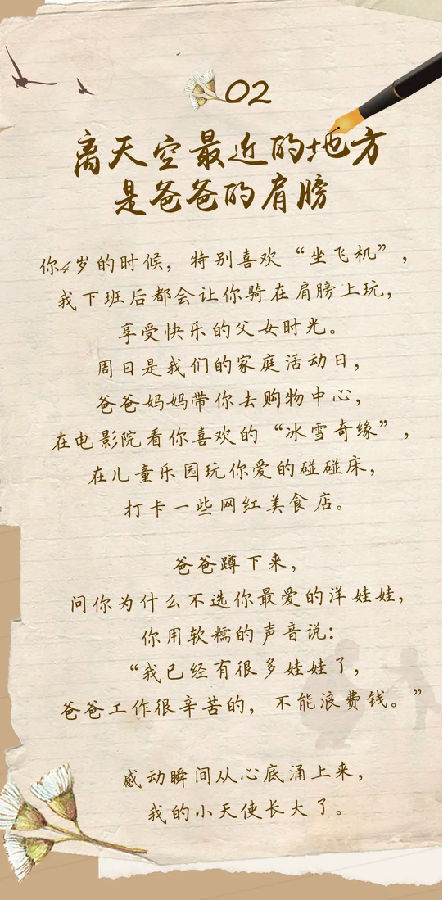 02
离天空最近的地方
是爸爸的肩膀
你4岁的时候，特别喜欢“坐飞机”，
我下班后都会让你骑在肩膀上玩，
享受快乐的父女时光。
周日是我们的家庭活动日，
爸爸妈妈带你去购物中心，
在电影院看你喜欢的“冰雪奇缘”，
在儿童乐园玩你爱的碰碰床，
打卡一些网红美食店。
爸爸蹲下来，
问你为什么不选你最爱的洋娃娃，
你用软糯的声音说：
“我已经有很多娃娃了，
爸爸工作很辛苦的，不能浪费钱。”
感动瞬间从心底涌上来，
我的小天使长大了。